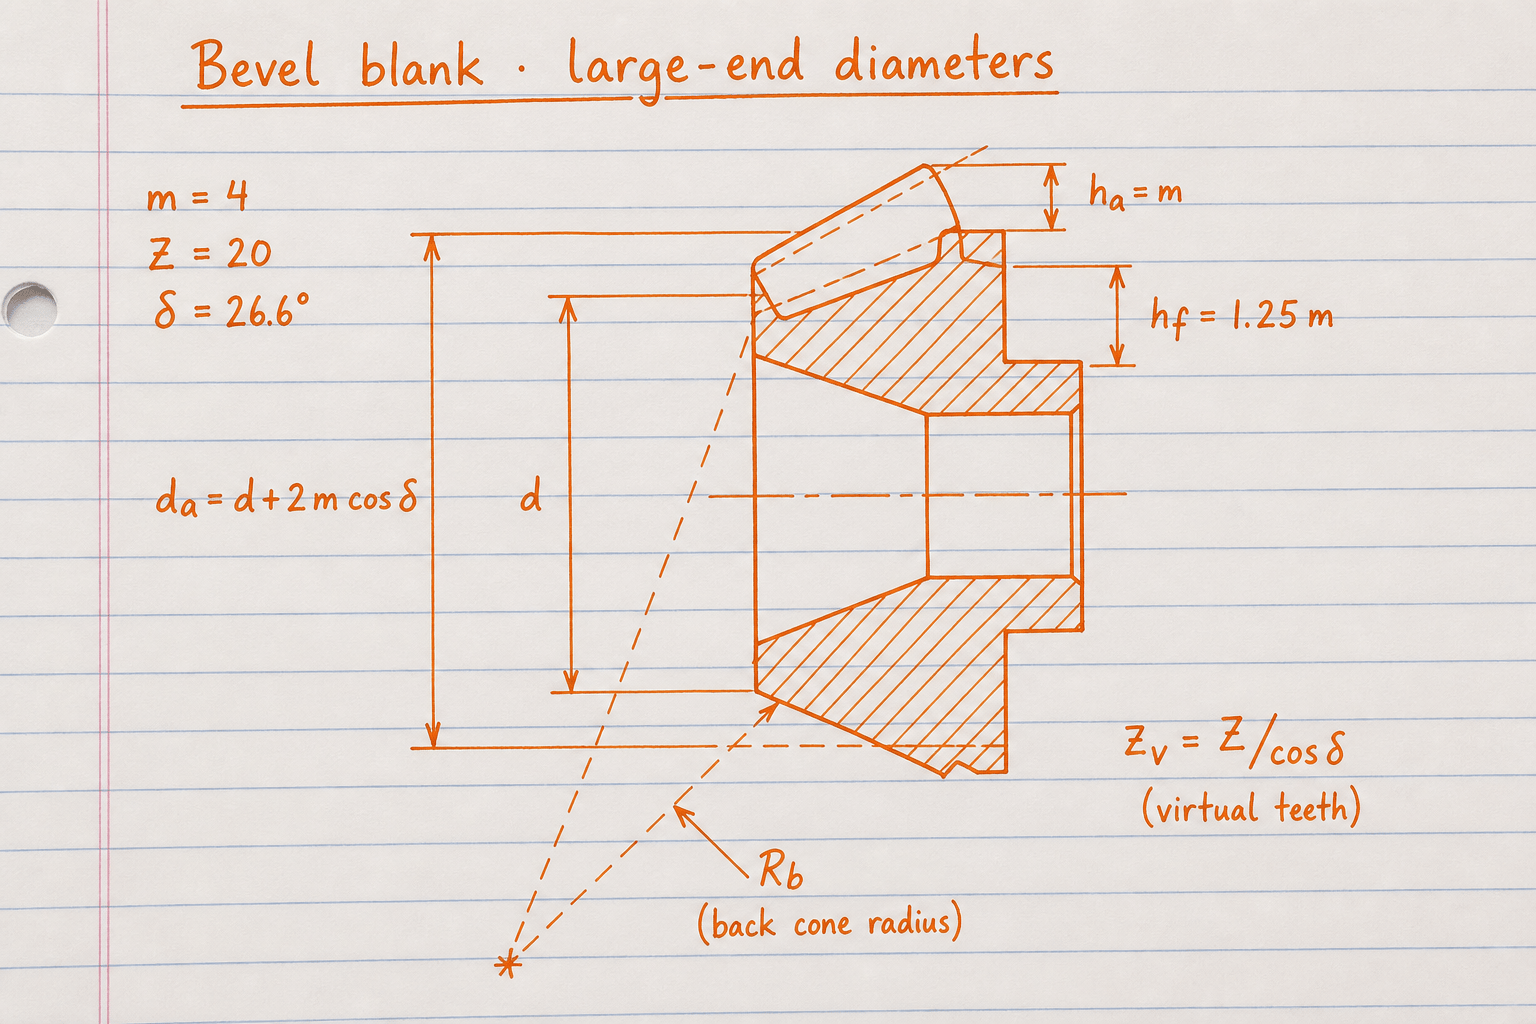 Bevel blank · large-end diameters
m = 4
Z = 20
δ = 26.6°
hₐ = m
h_f = 1.25 m
dₐ = d + 2 m cos δ
d
Z_v = Z/cos δ
(virtual teeth)
R_b
(back cone radius)